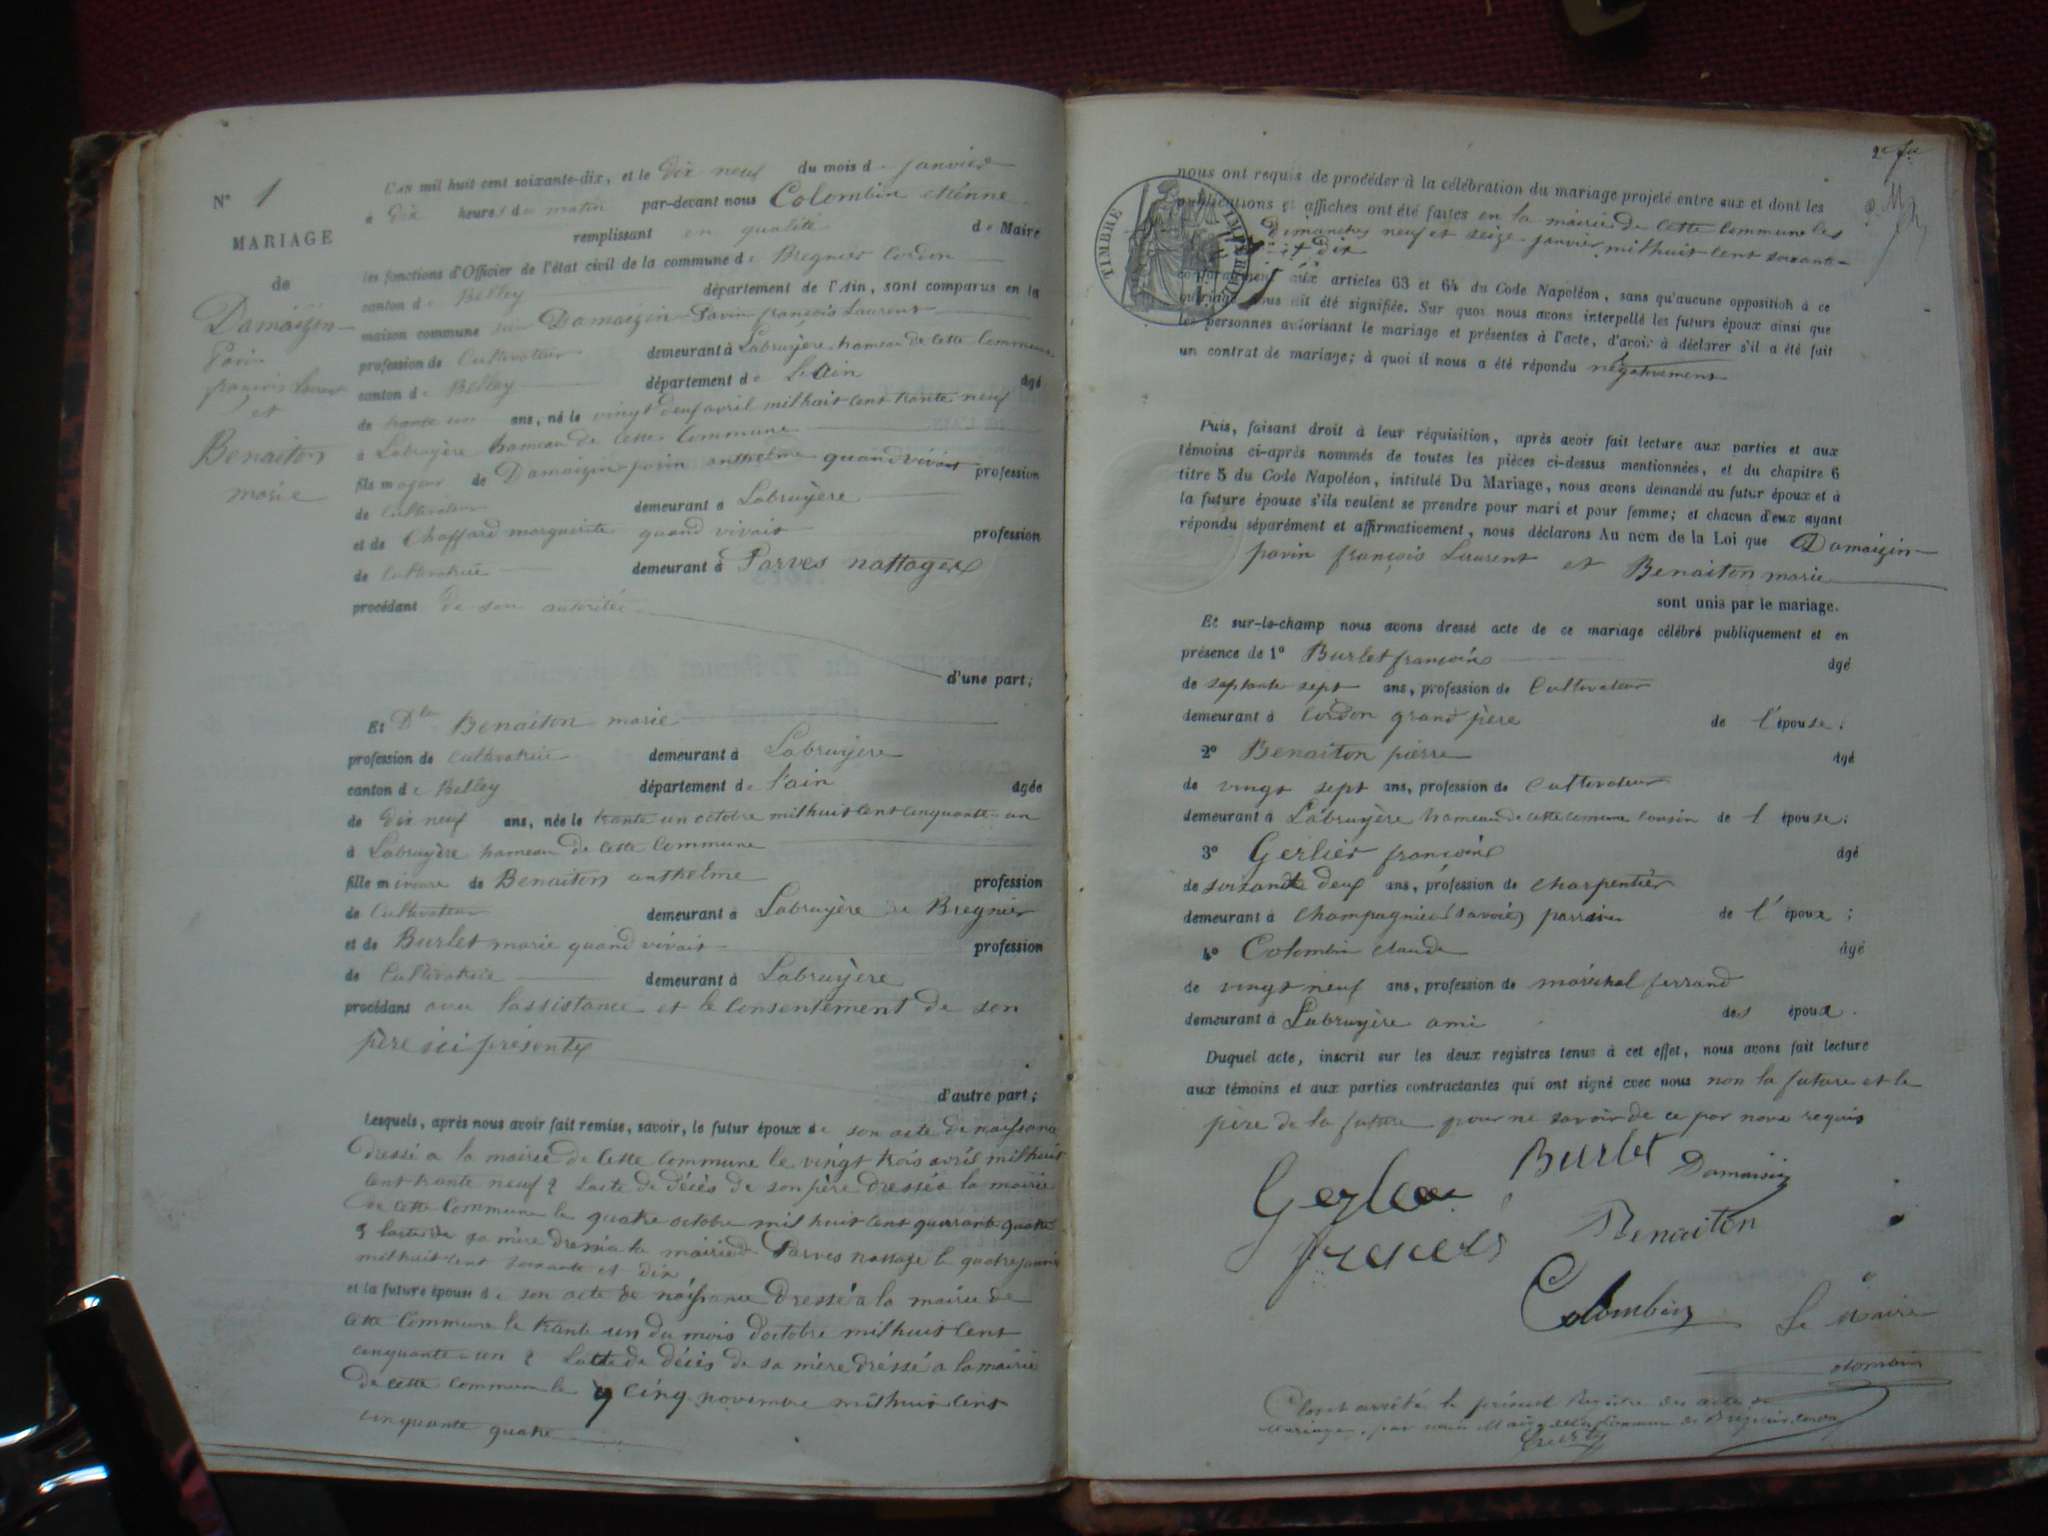 N° 1
MARIAGE
de
Damaizin
Pavin
françois Laurent
et
Benaiton
marie
L'AN mil huit cent soixante-dix, et le dix neuf du mois de janvier
à dix heures du matin par-devant nous Colombin etiénne
remplissant en qualité de Maire
les fonctions d'Officier de l'état civil de la commune de Bregnier Cordon
canton de Belley département de l'Ain, sont comparus en la
maison commune Damaizin Pavin françois Laurent
profession de Cultivateur demeurant à Labruyère hameau de cette Commune
canton de Belley département de L'ain âgé
de trente ans, né le vingt deux avril mil huit cent trente neuf
à Labruyère hameau de cette Commune
fils majeur de Damaizin pavin anthelme quand vivait profession
de Cultivateur demeurant à Labruyère
et de Chaffard marguerite quand vivait profession
de Cultivatrice demeurant à Parves nattages
procédant de son autorité
d'une part;
Et Dlle Benaiton marie
profession de cultivatrice demeurant à Labruyère
canton de Belley département de l'ain âgée
de dix neuf ans, née le trente un octobre mil huit cent cinquante un
à Labruyère hameau de cette Commune
fille mineure de Benaiton anthelme profession
de Cultivateur demeurant à Labruyère de Bregnier
et de Burlet marie quand vivait profession
de Cultivatrice demeurant à Labruyère
procédant avec lassistance et le Consentement de son
père ici présent
d'autre part;
Lesquels, après nous avoir fait remise, savoir, le futur époux de son acte de naissance
dressé a la mairie de Cette Commune le vingt trois avril mil huit
Cent trente neuf & Lacte de décès de son père dressé a la mairie
de cette Commune le quatre octobre mil huit cent quarante quatre
& lacte de sa mère dressé a la mairie de Parves nattage le quatre janvier
mil huit cent soixante et dix
et la future épouse de son acte de naissance dressé a la mairie de
cette Commune le trente un du mois d'octobre mil huit cent
cinquante un & Lacte de décès de sa mère dréssé a la mairie
de cette commune le cinq novembre mil huit cent
cinquante quatre
2e
TIMBRE IMPERIAL
nous ont requis de procéder à la célébration du mariage projeté entre eux et dont les
publications et affiches ont été faites en la mairie de Cette Commune les
dimanches neuf et seize janvier mil huit cent soixante
et dix
conformément aux articles 63 et 64 du Code Napoléon, sans qu'aucune opposition à ce
mariage nous ait été signifiée. Sur quoi nous avons interpellé les futurs époux ainsi que
les personnes autorisant le mariage et présentes à l'acte, d'avoir à déclarer s'il a été fait
un contrat de mariage; à quoi il nous a été répondu négativement
Puis, faisant droit à leur réquisition, après avoir fait lecture aux parties et aux
témoins ci-après nommés de toutes les pièces ci-dessus mentionnées, et du chapitre 6
titre 5 du Code Napoléon, intitulé Du Mariage, nous avons demandé au futur époux et à
la future épouse s'ils veulent se prendre pour mari et pour femme; et chacun d'eux ayant
répondu séparément et affirmativement, nous déclarons Au nom de la Loi que Damaizin
pavin françois Laurent et Benaiton marie
sont unis par le mariage.
Et sur-le-champ nous avons dressé acte de ce mariage célébré publiquement et en
présence de 1° Burlet françois âgé
de septante sept ans, profession de Cultivateur
demeurant à Cordon grand père de l'épouse;
2° Benaiton pierre âgé
de vingt sept ans, profession de Cultivateur
demeurant à Labruyère hameau de cette comune cousin de l épouse;
3° Gerlier françois âgé
de soixante deux ans, profession de charpentier
demeurant à Champagnieu (Savoie) parrain de l' époux;
4° Colombin claude âgé
de vingt neuf ans, profession de maréchal ferrand
demeurant à Labruyère ami des époux.
Duquel acte, inscrit sur les deux registres tenus à cet effet, nous avons fait lecture
aux témoins et aux parties contractantes qui ont signé avec nous non la future et le
père de la future pour ne savoir de ce par nous requis
Burlet Damaisin
Gerlier
Benaiton
Colombin Le Maire
Colombin
Clos et arrêté le présent Registre des actes de
Mariage, par nous Maire de la Commune de Brégnier Cordon